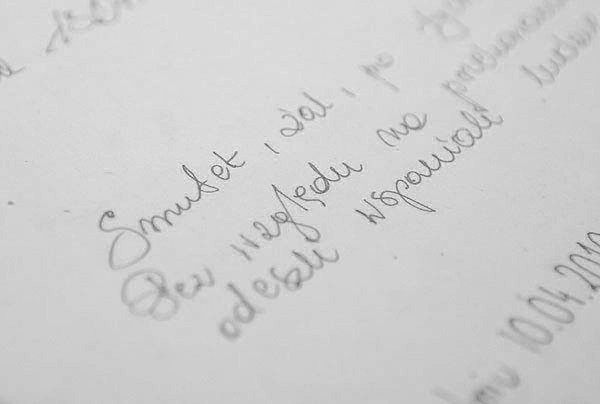 Smutek, żal, po
Bez względu na przekonania
odeszli wspaniali ludzie
dnia 10.04.2010